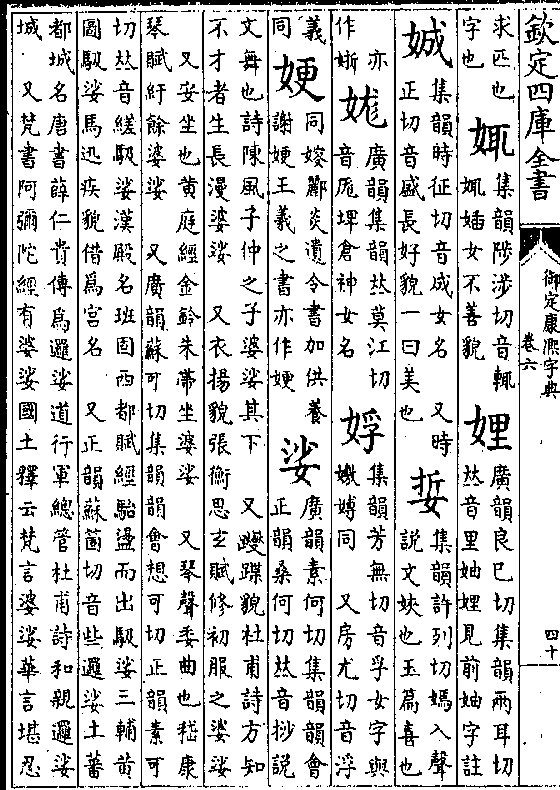 欽定四庫全書
御定康熙字典
卷六
四十
求匹也
字也
集韻陟涉切音輒
女不善貌
娌
廣韻良已切集韻兩耳切
𠀤音里妯娌見前妯字註
娍
集韻時征切音成女名 又時
正切音盛長好貌一曰美也
娎
集韻許列切嫣入聲
說文㛍也玉篇喜也
亦
作
娏
廣韻集韻𠀤莫江切
音厖埤倉神女名
娐
集韻芳無切音孚女字與
同 又房尤切音浮
義
同
㛐
同嫂酈炎遺令書加供養
謝㛐王羲之書亦作㛐
娑
廣韻素何切集韻韻會
正韻桑何切𠀤音挱說
文舞也詩陳風子仲之子婆娑其下 又蹩躠貌杜甫詩方知
不才者生長漫婆娑 又衣揚貌張衡思玄賦修初服之娑娑
又安坐也黄庭經金鈴朱帶坐婆娑 又琴聲委曲也嵇康
琴賦紆餘婆娑 又廣韻蘇可切集韻韻會想可切正韻素可
切𠀤音縒馺娑漢殿名班固西都賦經駘盪而出馺娑三輔黄
圖馺娑馬迅疾貌借爲宮名 又正韻蘇箇切音些邏娑土蕃
都城名唐書薛仁貴傳爲邏娑道行軍總管杜甫詩和親邏娑
城 又梵書阿彌陀經有娑婆國土釋云梵言娑婆華言堪忍